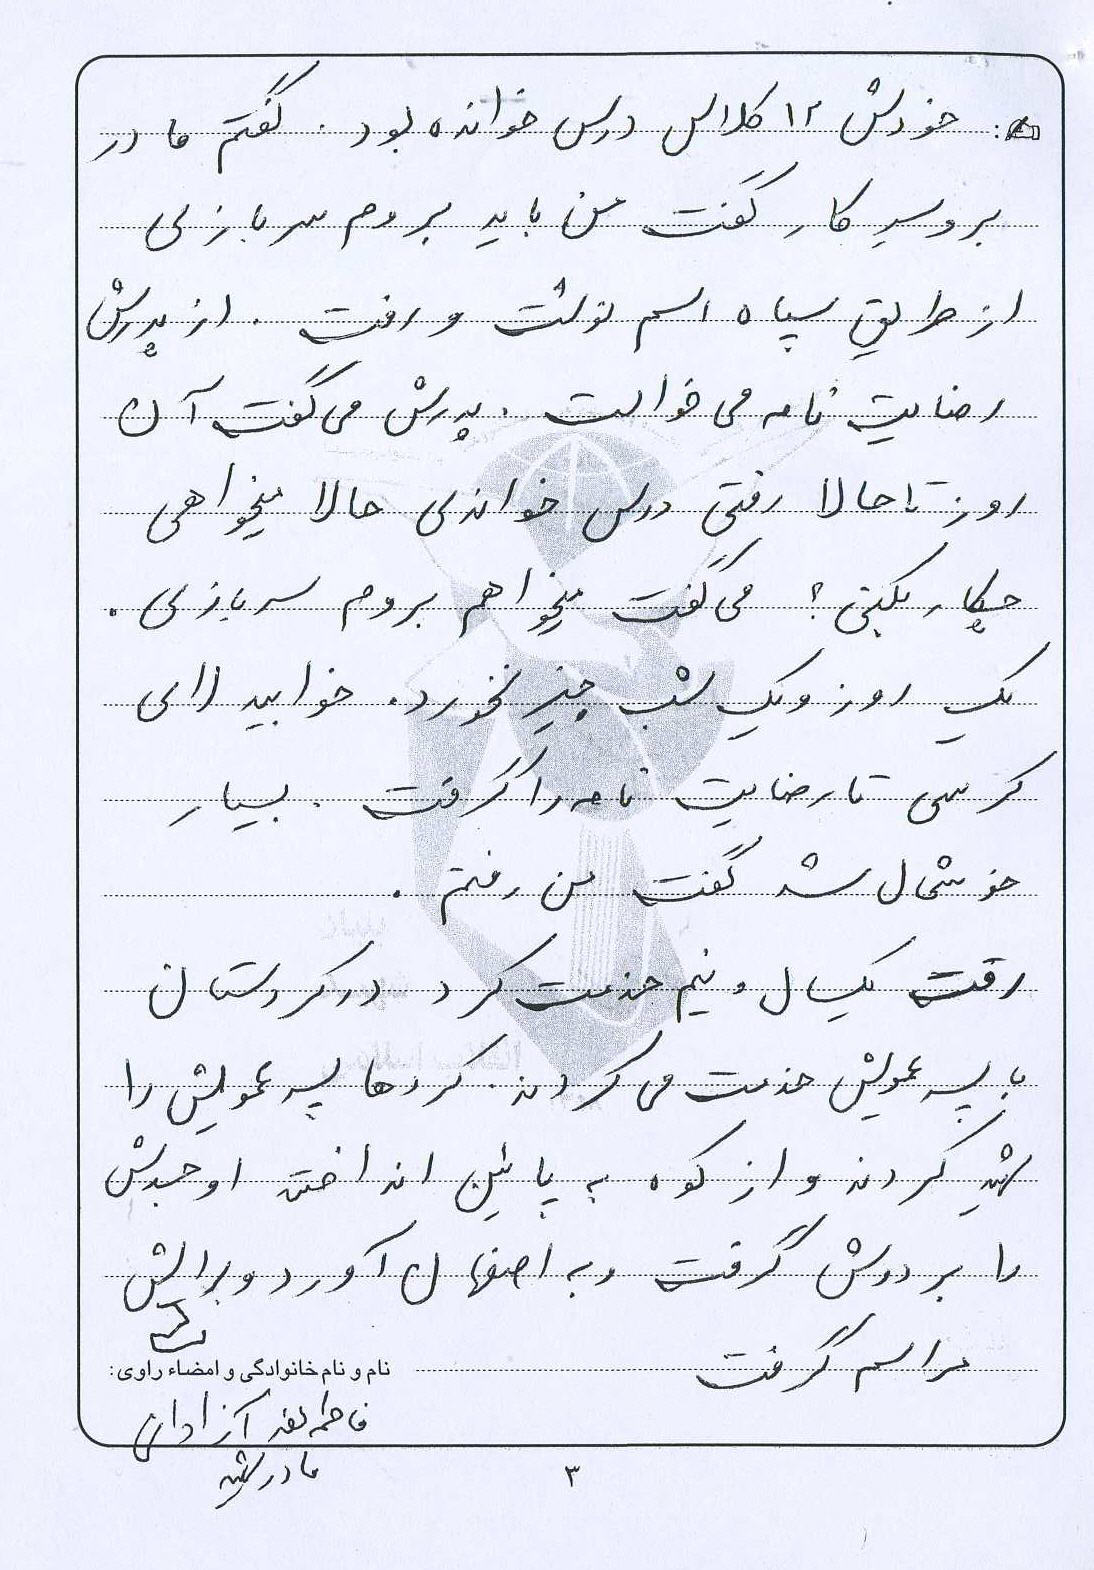 خودش ۱۲ کلاس درس خوانده بود . گفتم مادر
برو سر کار گفت من باید بروم سربازی
از طریق سپاه اسم نوشت و رفت . از پدرش
رضایت نامه می خواست . پدرش می گفت آن
روز تا حالا رفتی درس خواندی حالا میخواهی
چکار بکنی ؟ می گفت میخواهم بروم سربازی .
یک روز و یک شب چیز نخورد . خوابید لای
کرسی تا رضایت نامه را گرفت . بسیار
خوشحال شد گفت من رفتم .
رفت یکسال و نیم خدمت کرد در کردستان
با پسر عمویش خدمت می کردند . کردها پسر عمویش را
شهید کردند و از کوه به پایین انداختند او جسدش
را بر دوش گرفت و به اصفهان آورد و برایش
مراسم گرفت
نام و نام خانوادگی و امضاء راوی:
فاطمه آزادان
مادر شهید
۳